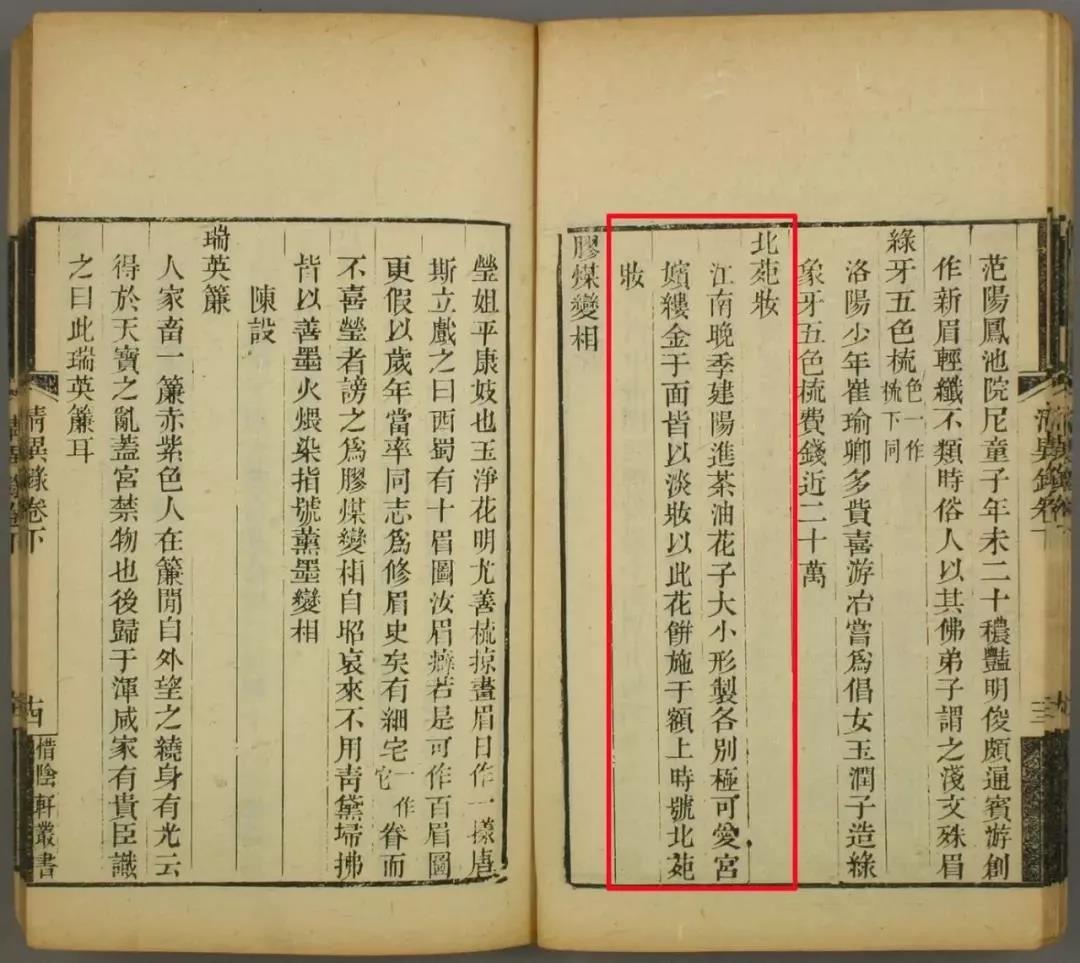 范陽鳳池院尼童子年未二十穠豔明俊頗通賓游創
作新眉輕纖不類時俗人以其佛弟子謂之淺文殊眉
綠牙五色梳色一作梳下同
洛陽少年崔瑜卿多貲喜游冶嘗爲倡女玉潤子造綠
象牙五色梳費錢近二十萬
北苑妝
江南晚季建陽進茶油花子大小形製各別極可愛宮
嬪縷金于面皆以淡妝以此花餅施于額上時號北苑
妝
膠煤變相
瑩姐平康妓也玉淨花明尤善梳掠畫眉日作一樣唐
斯立戲之曰西蜀有十眉圖汝眉癖若是可作百眉圖
更假以歲年當率同志爲修眉史矣有細宅一作它眷而
不喜瑩者謗之爲膠煤變相自昭哀來不用靑黛埽拂
皆以善墨火煨染指號薰墨變相
陳設
瑞英簾
人家畜一簾赤紫色人在簾閒自外望之繞身有光云
得於天寶之亂蓋宮禁物也後歸于渾咸家有貴臣識
之曰此瑞英簾耳
清異錄卷下
十四
惜陰軒叢書